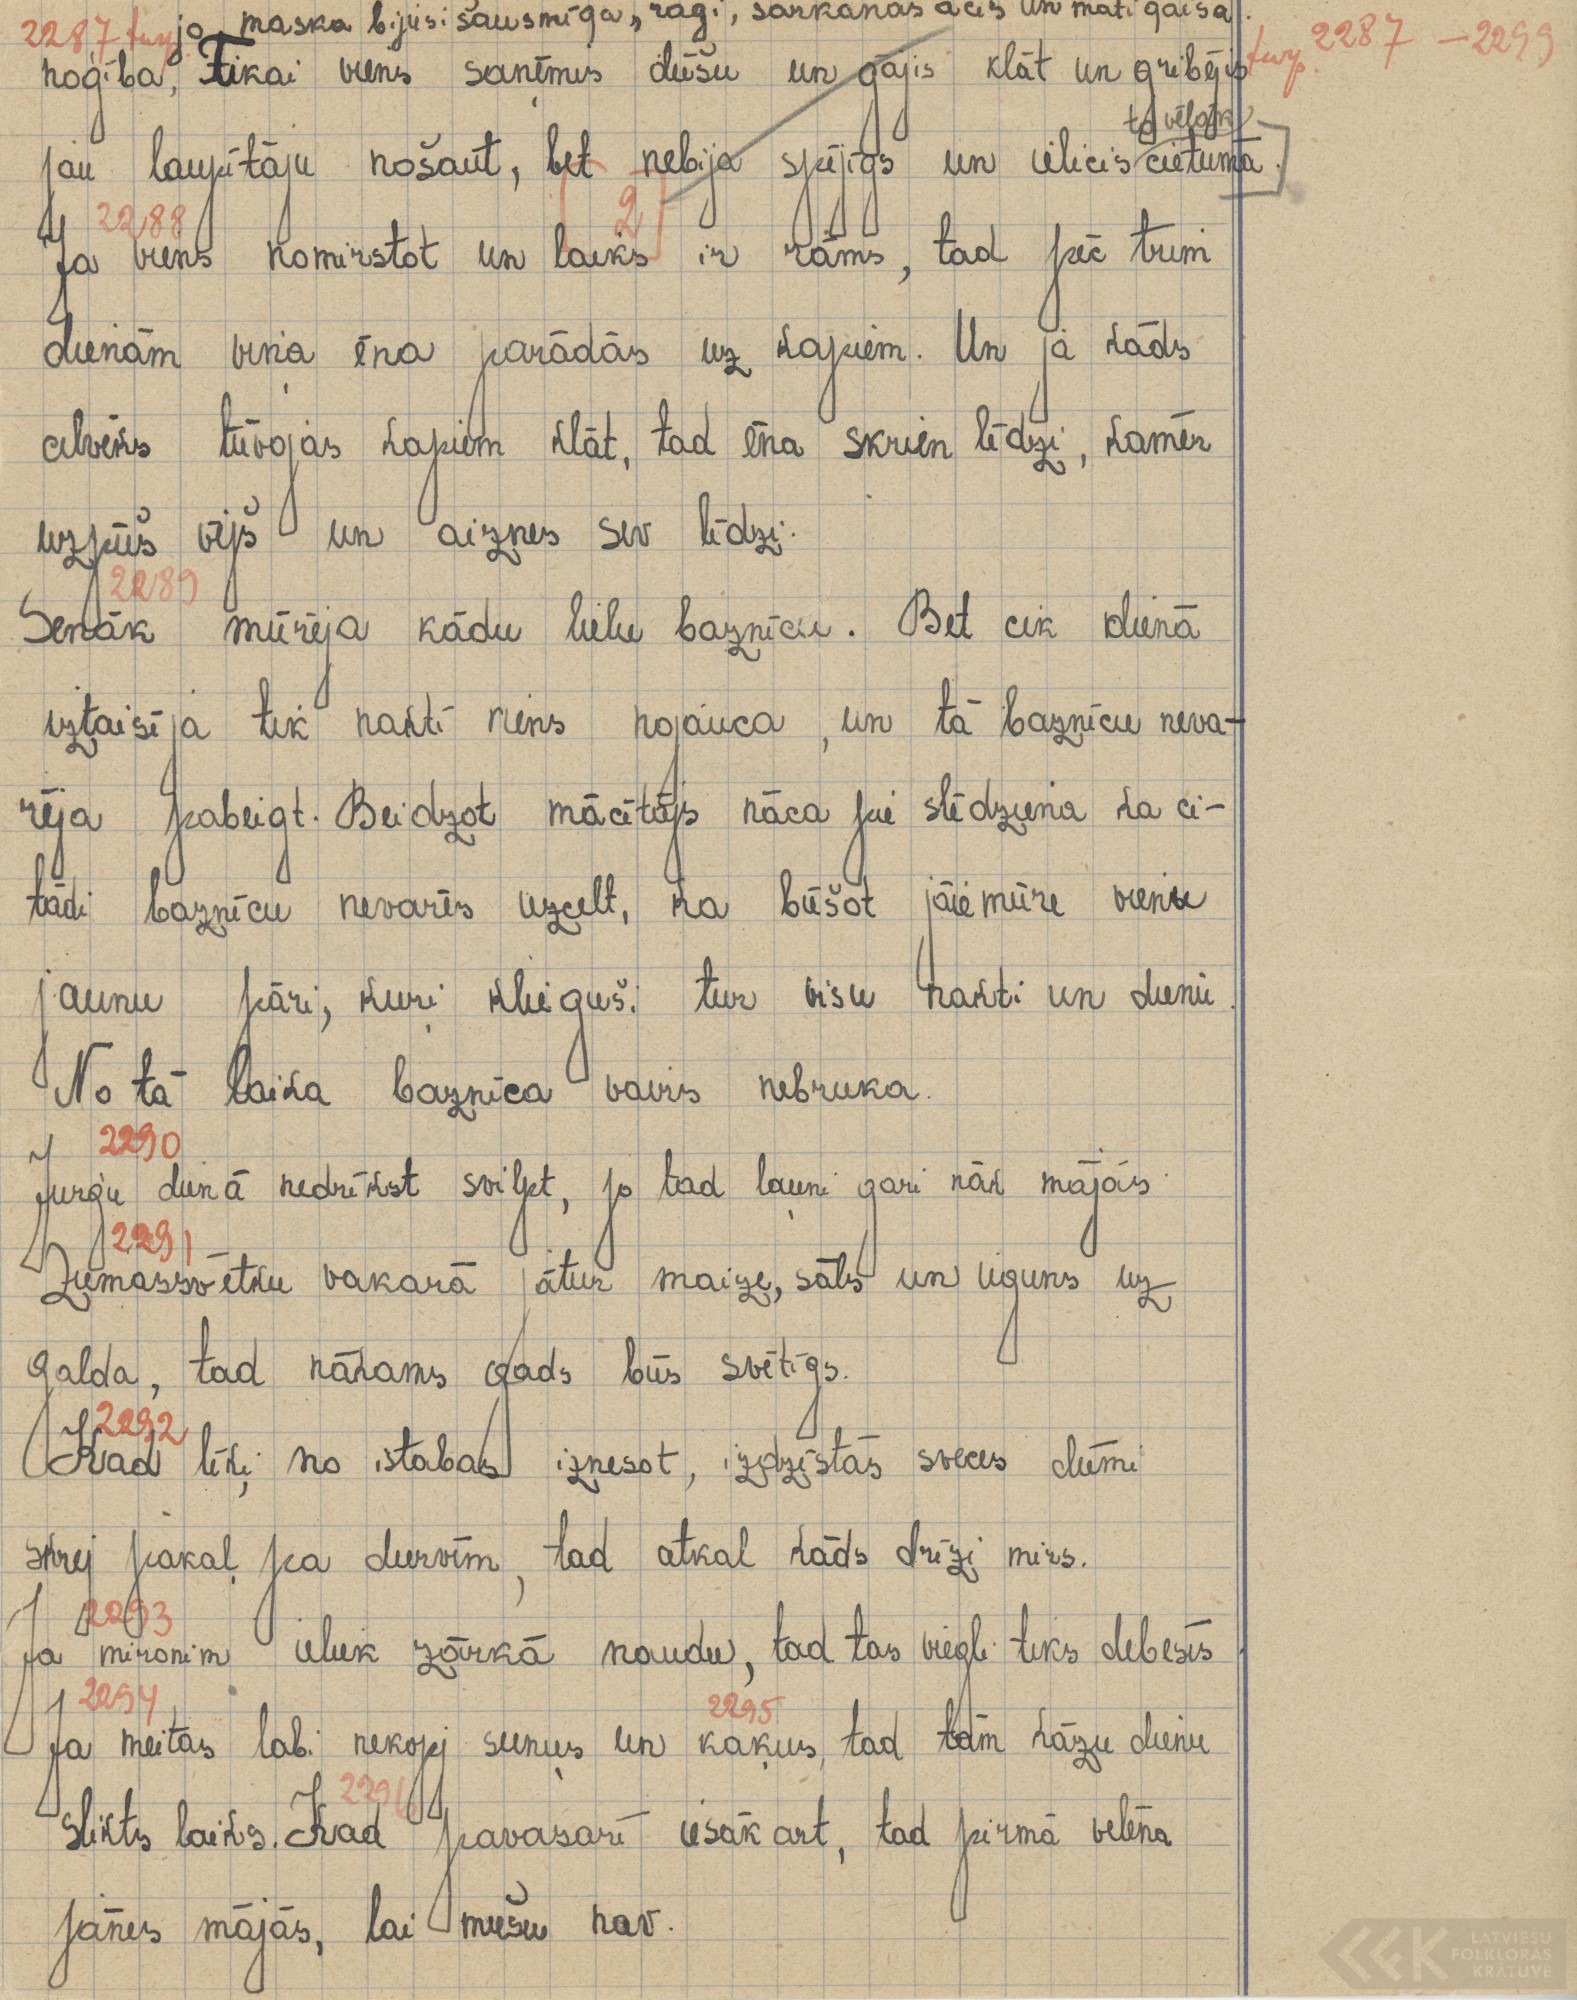 2287 turp. jo maska bijusi šausmīga, ragi, sarkanas acis un mati gaisā.
noģība, Tikai viens saņēmis dūšu un gājis klāt un gribējis turp. 2287 – 2299
to vēlāk
jau laupītāju nošaut, bet nebija spējīgs un ielicis cietumā.
2288 2
Ja viens nomirstot un laiks ir rāms, tad pēc trim
dienām viņa ēna parādās uz kapiem. Un ja kāds
cilvēks tūvojās kapiem klāt, tad ēna skrien līdzi, kamēr
uzpūš vējš un aiznes sev līdzi.
2289
Senāk mūrēja kādu lielu baznīcu. Bet cik dienā
iztaisīja tik naktī viens nojauca, un tā baznīcu neva-
rēja pabeigt. Beidzot mācītājs nāca pie slēdziena ka ci-
tādi baznīcu nevarēs uzcelt, ka būšot jāiemūre vienu
jaunu pāri, kuri kliegusi tur visu nakti un dienu.
No tā laika baznīca vairs nebruka.
2290
Jurģu dienā nedrīkst svilpt, jo tad ļauni gari nāk mājās.
2291
Ziemassvētku vakarā jātur maize, sāls un uguns uz
galda, tad nākams gads būs svētīgs.
2292
Kad līķi no istabas iznesot, izdzīstās sveces dūmi
skrej pakaļ pa durvīm, tad atkal kāds drīzi mirs.
2293
Ja mironim ieliek zārkā naudu, tad tas viegli tiks debesīs.
2294 2295
Ja meitas labi nekopj suņus un kaķus, tad tām kāzu dienu
2296
slikts laiks. Kad pavasarī iesāk art, tad pirmā velēna
jānes mājās, lai mušu nav.
LATVIEŠU
FOLKLORAS
KRĀTUVE